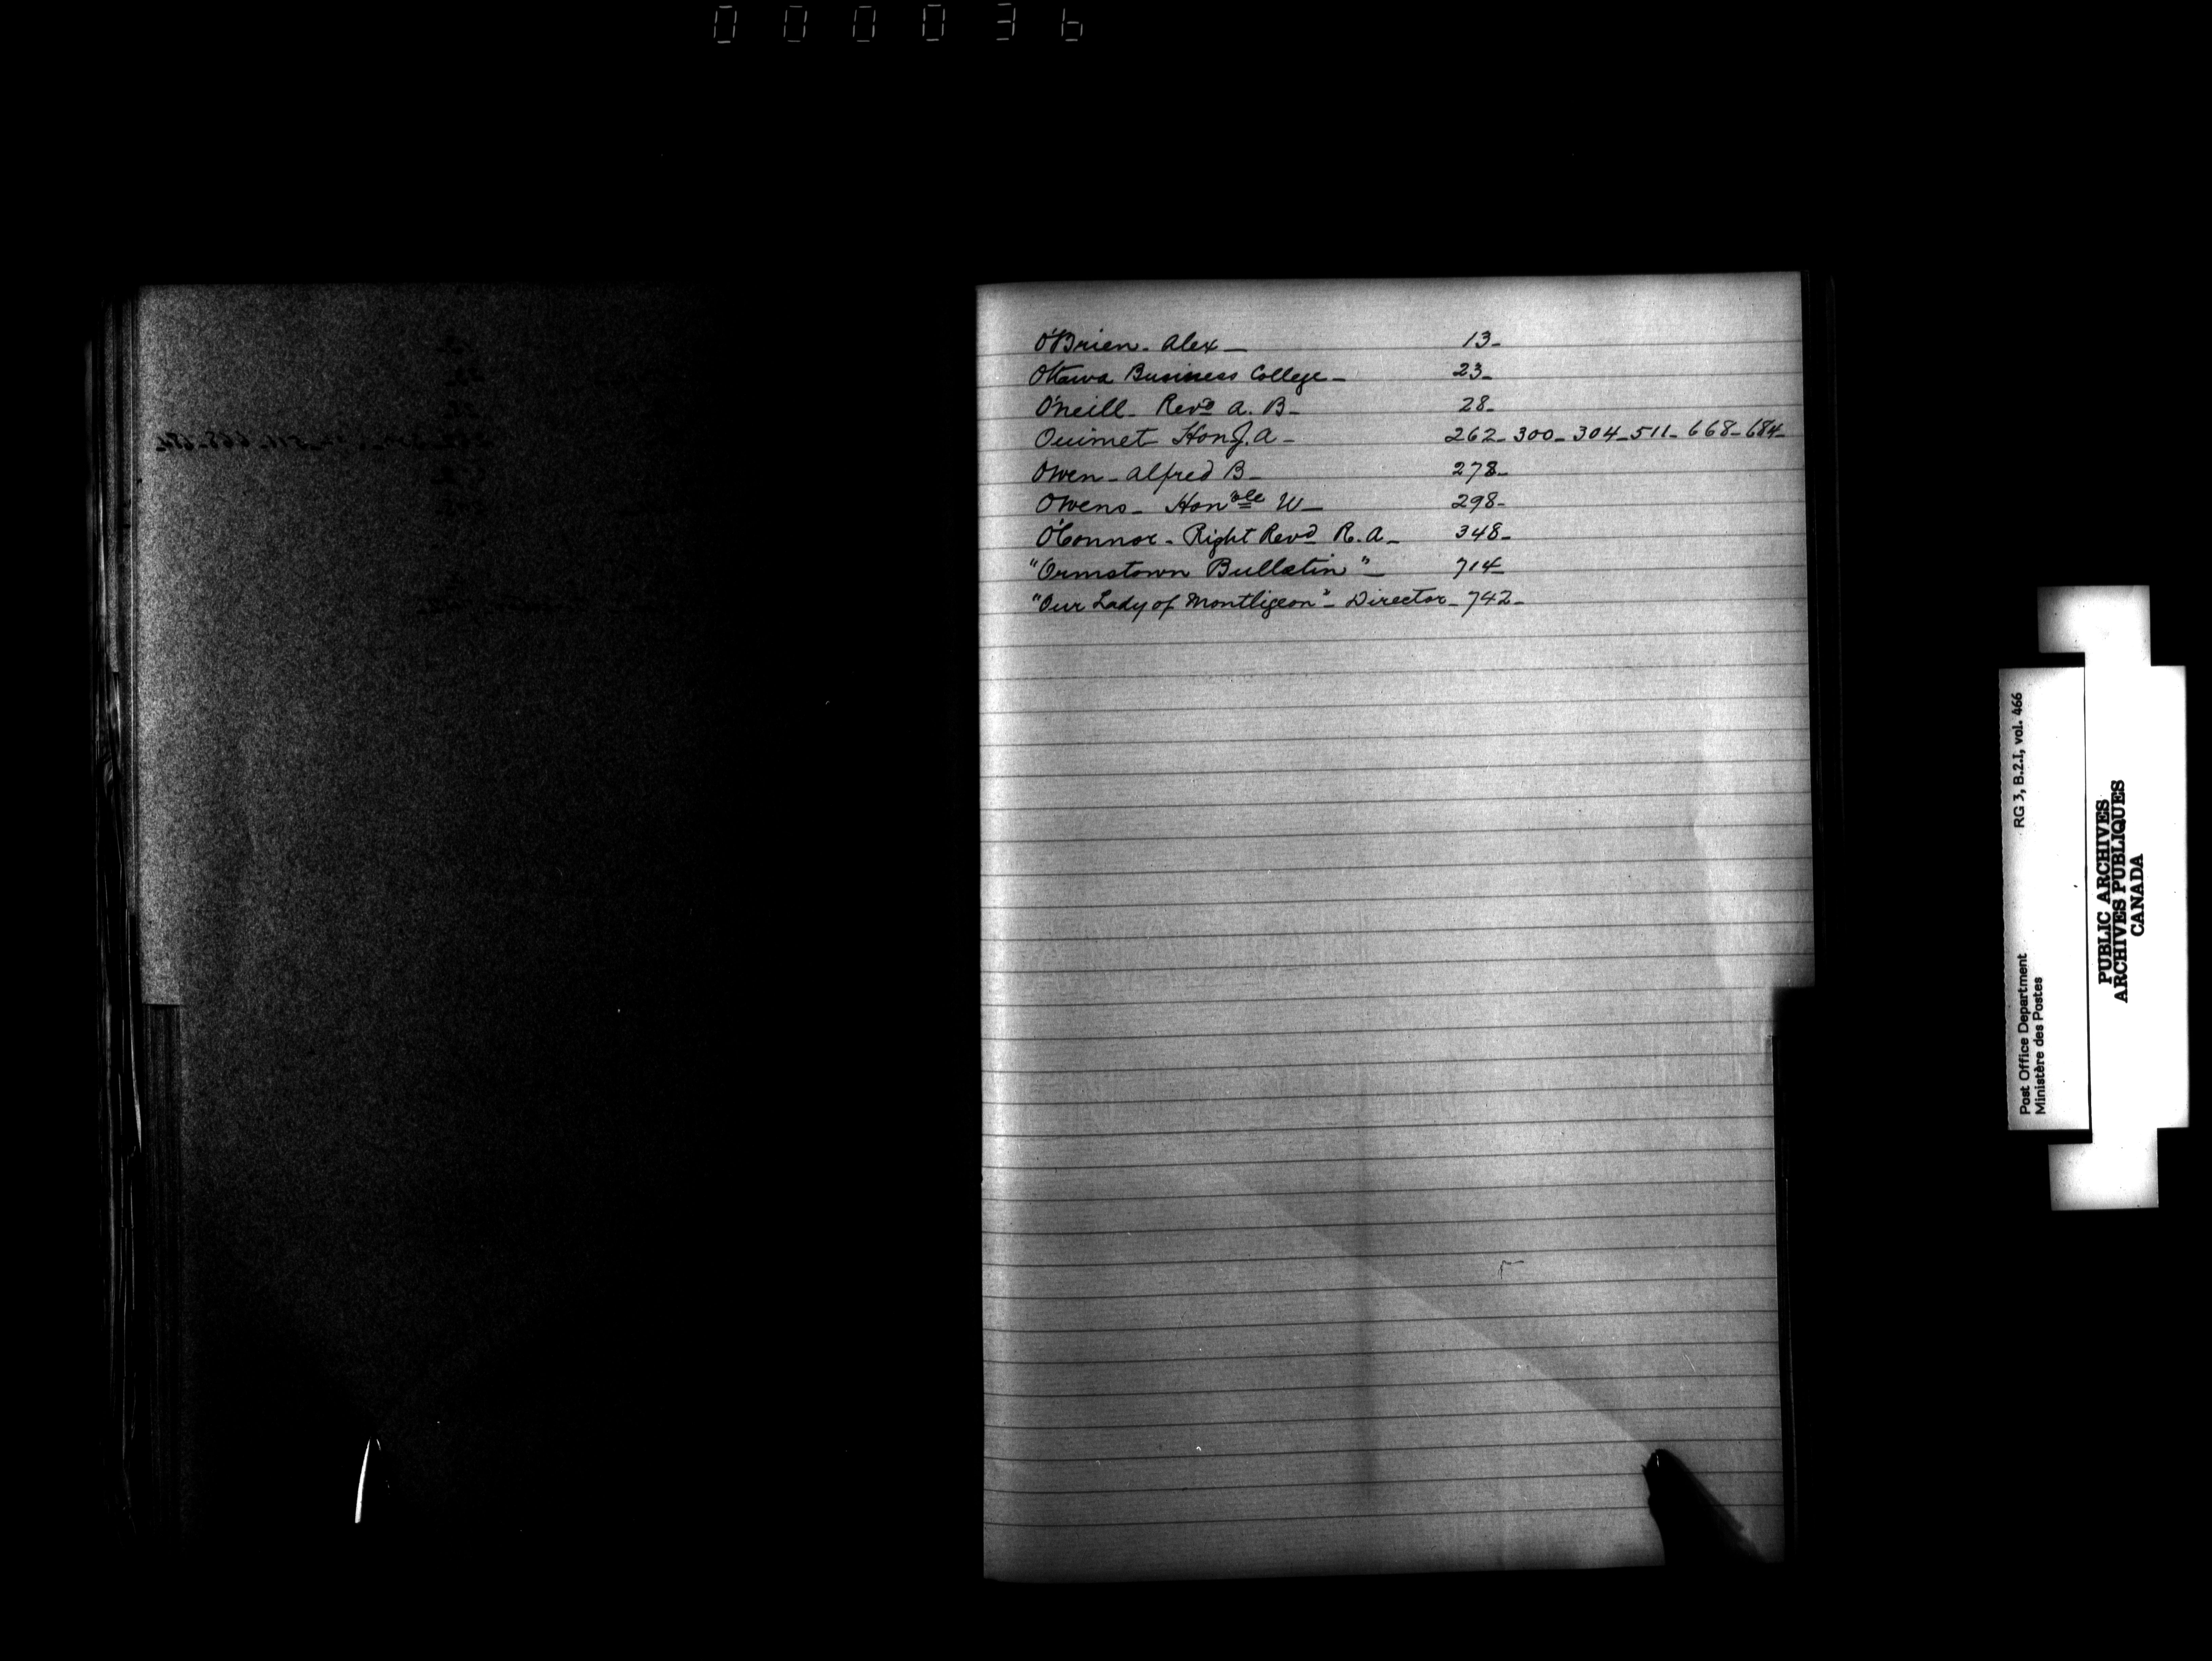 000036
O'Brien - Alex - 13 -
Ottawa Business College - 23 -
O'Neill - Revd A. B - 28 -
Ouimet Hon J. A - 262 - 300 - 304 - 511 - 668 - 684 -
Owen - Alfred B - 278 -
Owens - Hon'ble W - 298 -
O'Connor - Right Revd R. A - 348 -
"Ormstown Bulletin" - 714
"Our Lady of Montligeon" - Director - 742 -
Post Office Department RG 3, B.2.1, vol. 466
Ministère des Postes
PUBLIC ARCHIVES
ARCHIVES PUBLIQUES
CANADA